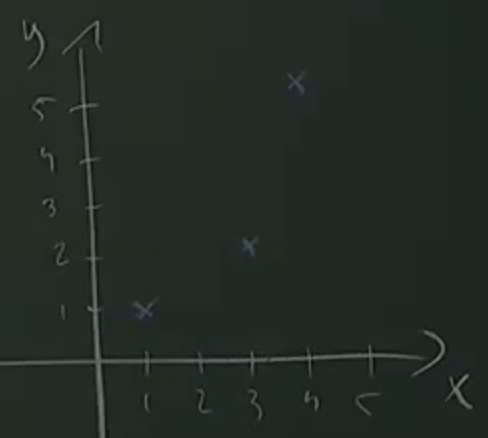 y
5
4
3
2
1
1 2 3 4 5
x